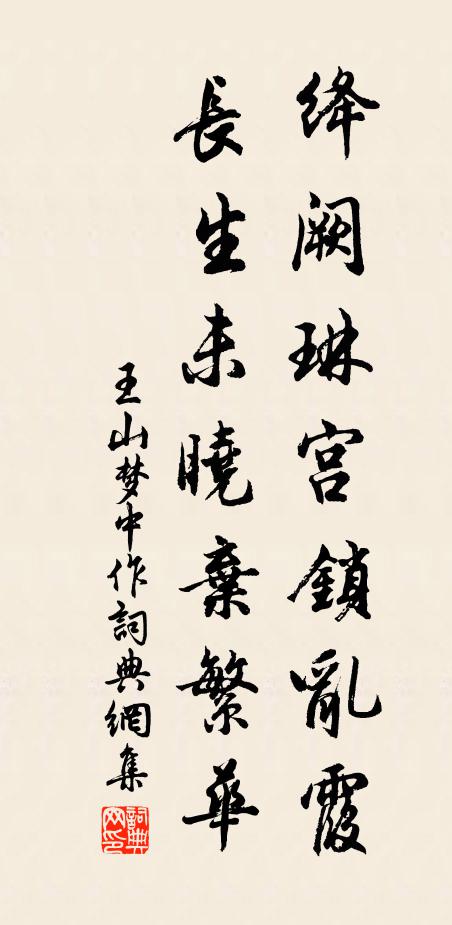 绛阙琳宫鎖亂霞
長生未曉棄繁華
王山梦中作詞典網集
詞典网印